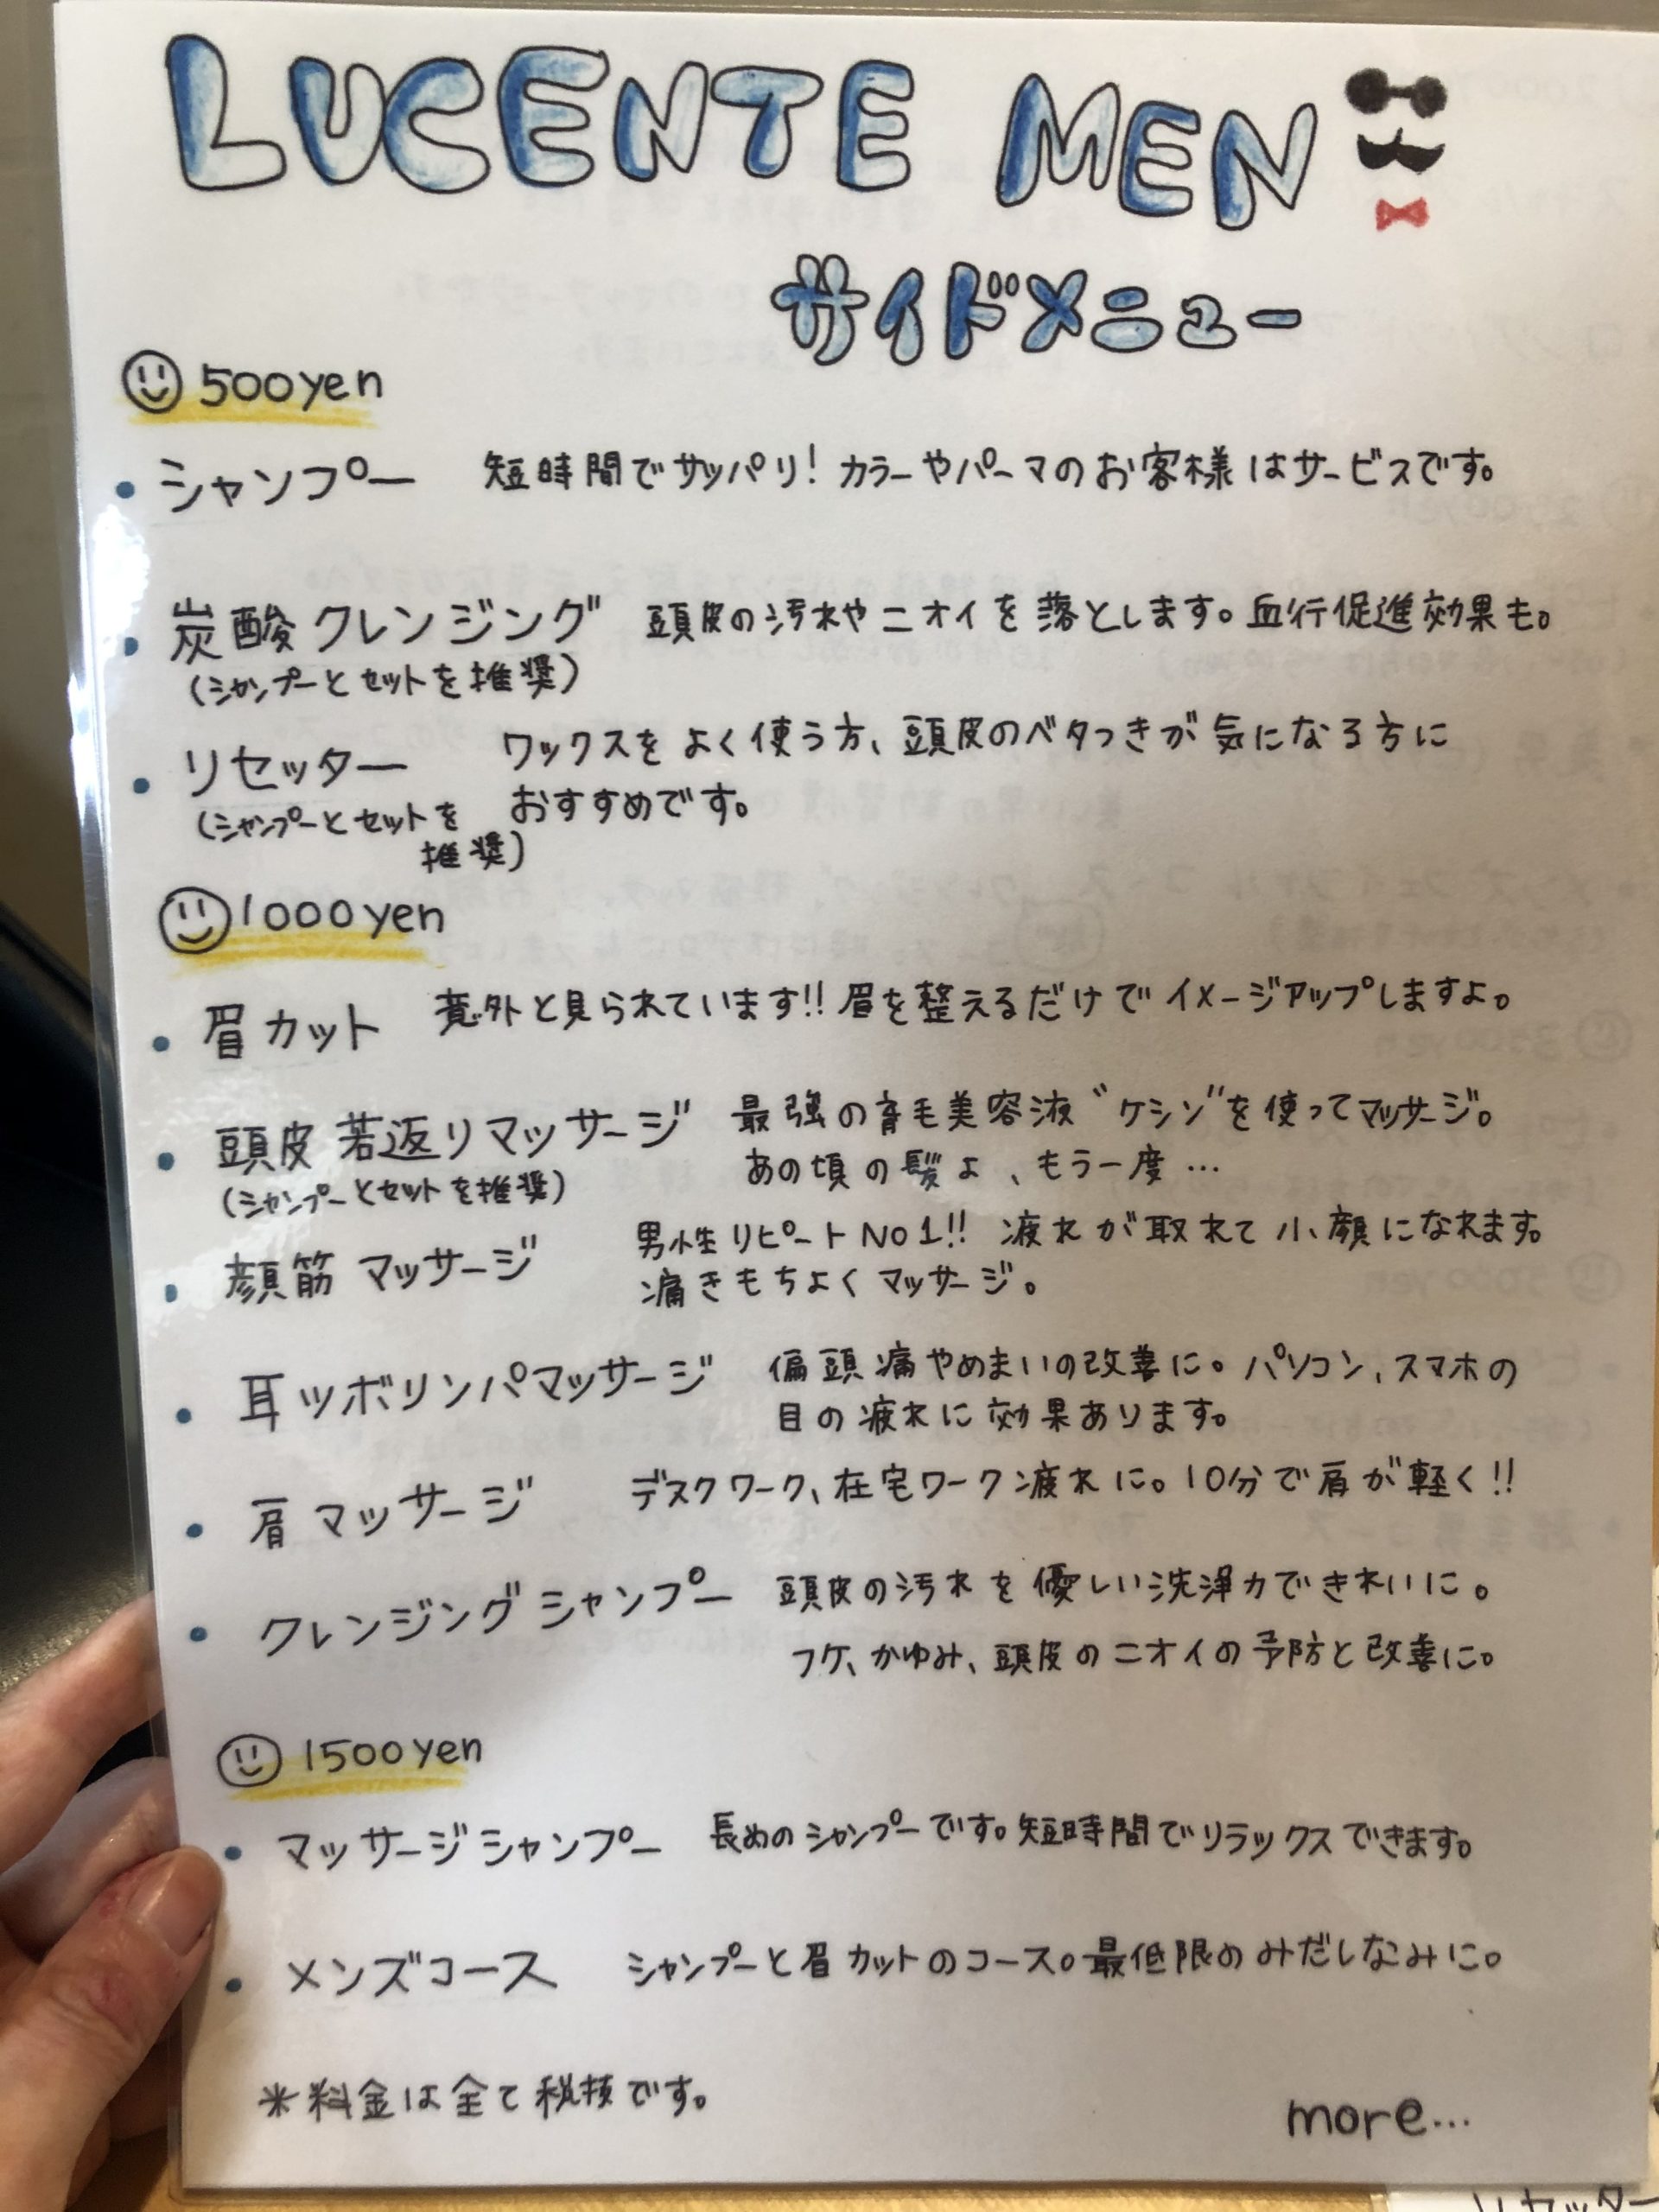 LUCENTE MEN
サイドメニュー
500yen
・シャンプー 短時間でサッパリ! カラーやパーマのお客様はサービスです。
・炭酸クレンジング 頭皮の汚れやニオイを落とします。血行促進効果も。
(シャンプーとセットを推奨)
・リセッター ワックスをよく使う方、頭皮のベタつきが気になる方に
おすすめです。
(シャンプーとセットを
推奨)
1000yen
・眉カット 意外と見られています!! 眉を整えるだけでイメージアップしますよ。
・頭皮若返りマッサージ 最強の育毛美容液“ケシン”を使ってマッサージ。
(シャンプーとセットを推奨) あの頃の髪よ、もう一度…
・顔筋マッサージ 男性リピートNo1!! 疲れが取れて小顔になれます。
痛きもちよくマッサージ。
・耳ツボリンパマッサージ 偏頭痛やめまいの改善に。パソコン、スマホの
目の疲れに効果あります。
・肩マッサージ デスクワーク、在宅ワーク疲れに。10分で肩が軽く!!
・クレンジングシャンプー 頭皮の汚れを優しい洗浄力できれいに。
フケ、かゆみ、頭皮のニオイの予防と改善に。
1500yen
・マッサージシャンプー 長めのシャンプーです。短時間でリラックスできます。
・メンズコース シャンプーと眉カットのコース。最低限のみだしなみに。
*料金は全て税抜です。
more...
リセッター